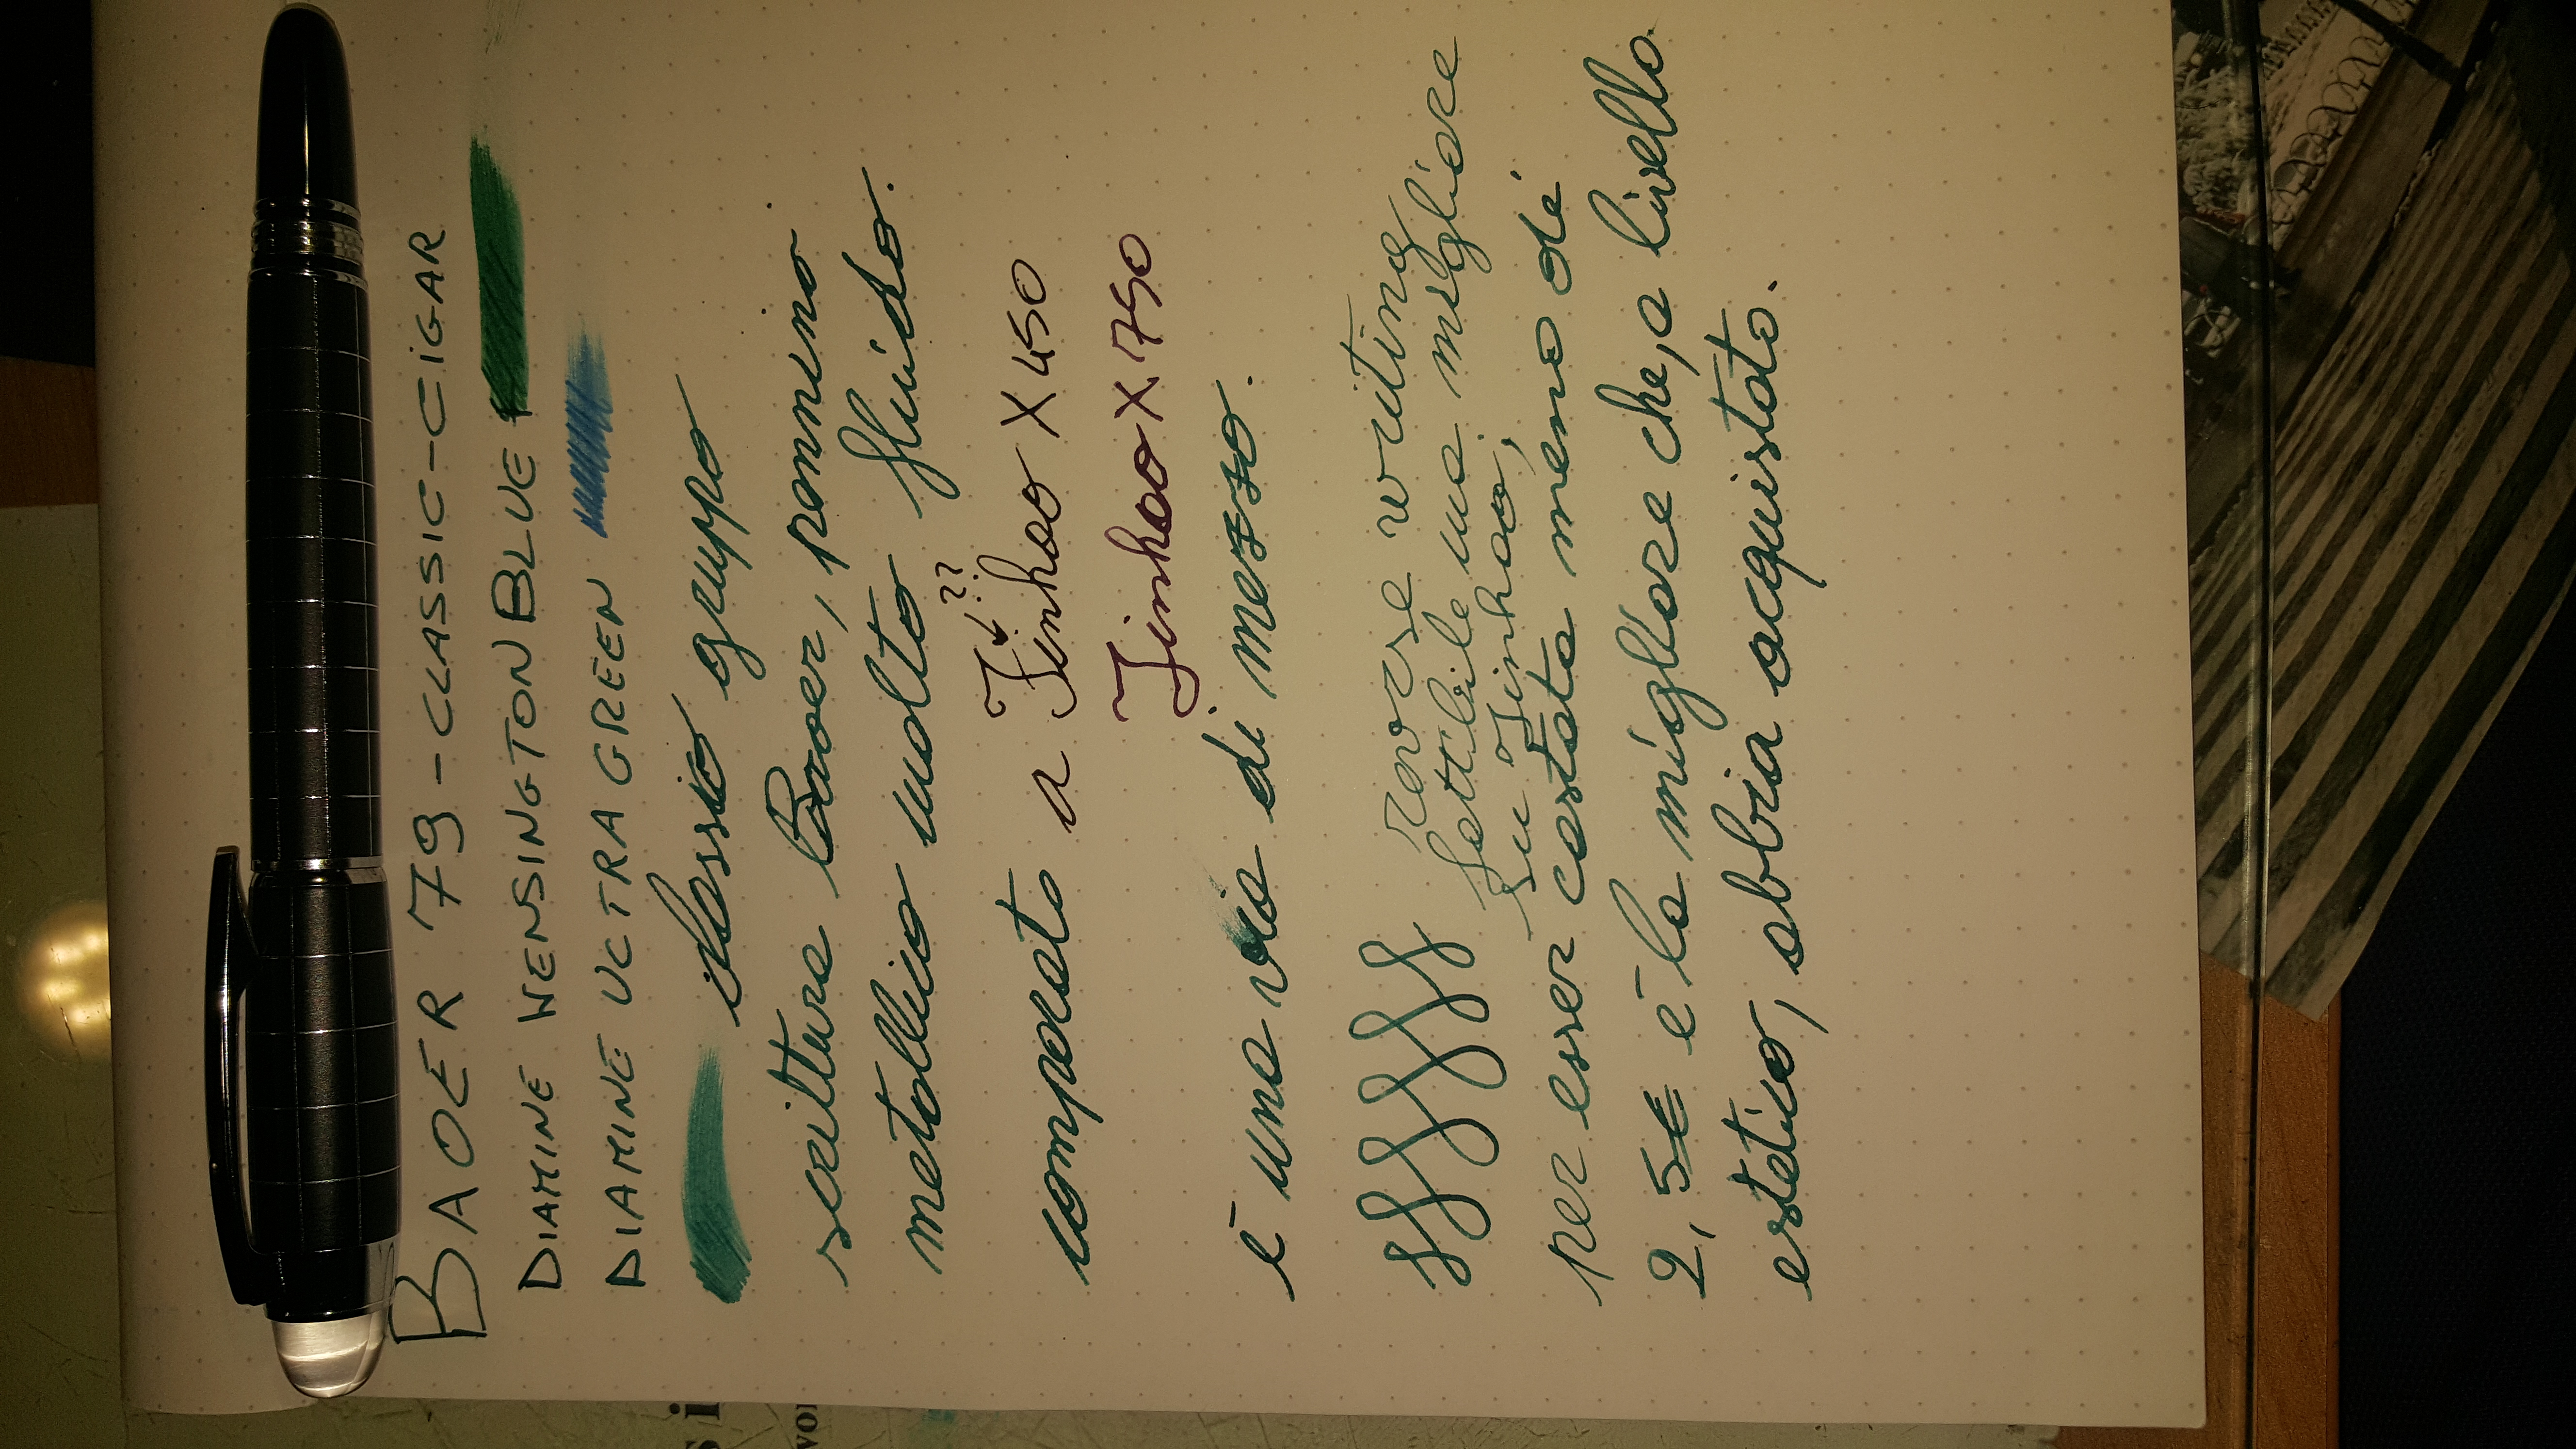 BAOER 79-CLASSIC-CIGAR
DIAMINE KENSINGTON BLUE +
DIAMINE ULTRA GREEN
classico gruppo
scrittura Baoer, pennino
metallico molto fluido.
??
comparato a Jinhao X450
Jinhao X750
è una via di mezzo.
reverse writing
fattibile ma migliore
su Jinhao,
per esser costata meno di
2,5€ è la migliore che, a livello
estetico, abbia acquistato.
si
wor